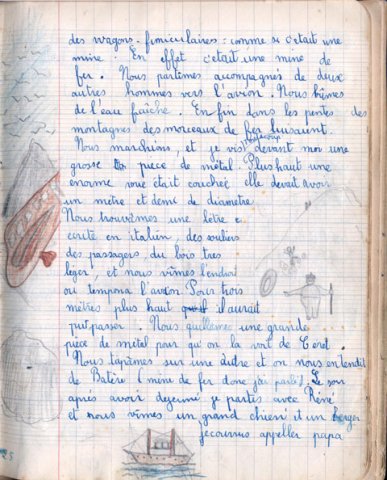 des wagons. funiculaires: comme si c'était une
mine. En effet c'etait une mine de
fer. Nous partimes accompagnes de deux
autres hommes vers l'avion. Nous bûmes
de l'eau fraîche. En fin dans les pentes des
montagnes des morceaux de fer luisaient.
Nous marchions, et je vis devant moi une
grosse piece de métal. Plus haut une
enorme roue était couchée elle devait avoir
un metre et demi de diametre
Nous trouvâmes une letre
ecrite en italien, des souliers
des passagers, du bois tres
leger, et nous vîmes l'endroit
ou tempona l'avion Pour trois
mètres plus haut il aurait
pu passer. Nous une grande
pièce de métal pour qu'on la voit de Ceret.
Nous tapâmes sur une autre et on nous entendit
de Batère (mine de fer donc j'ai parlé). Le soir
apres avoir dejeuné je partis avec Réné
et nous vîmes un grand chien et un berger
je courus appeller papa